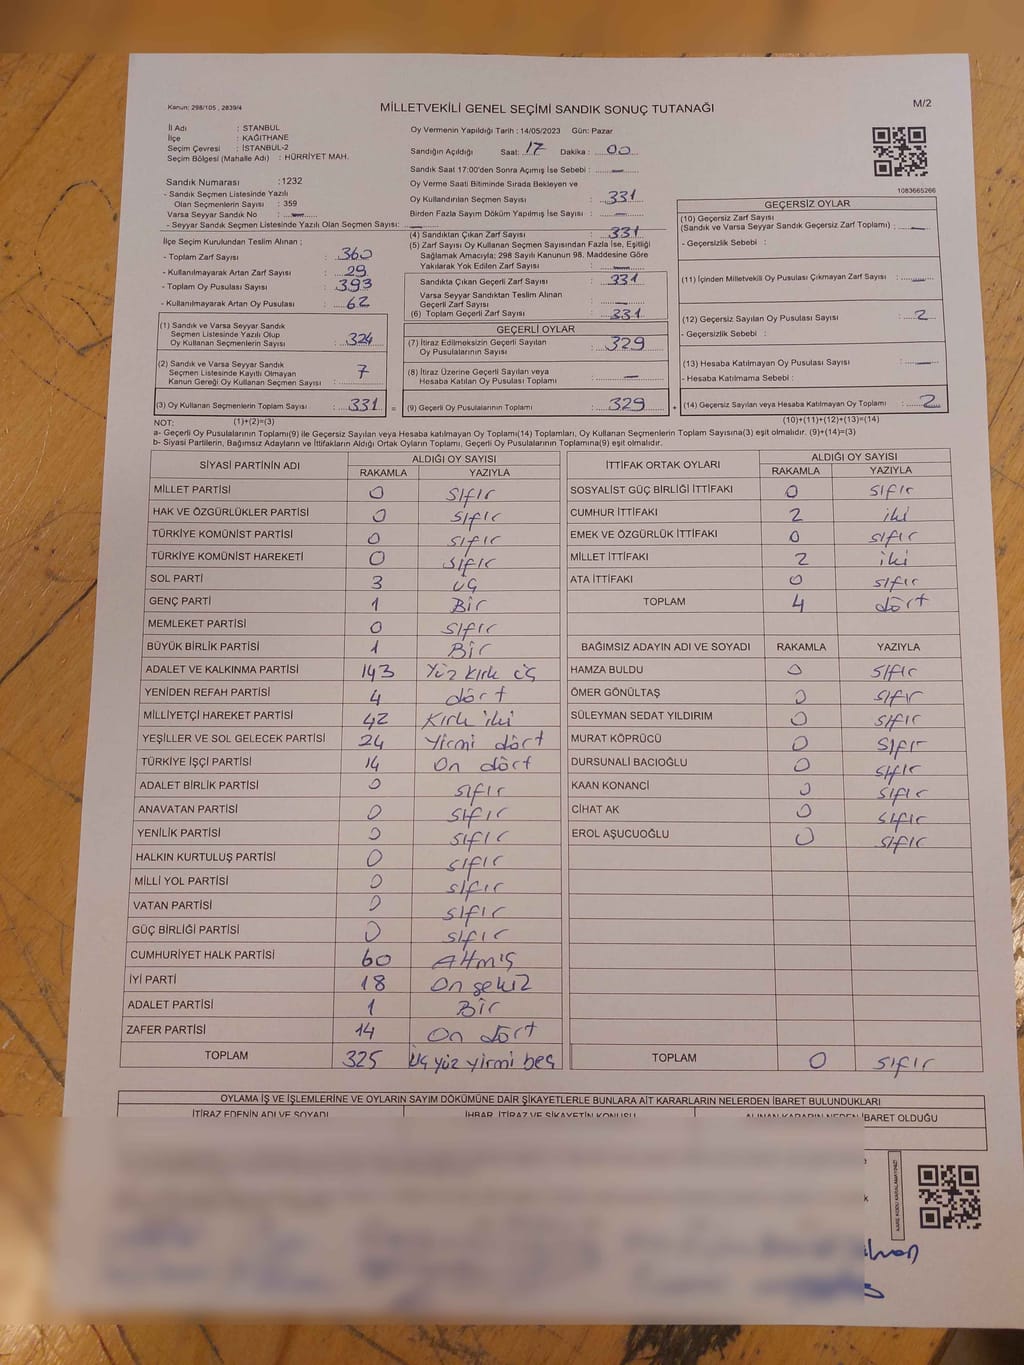 Kanun: 298/105 , 2839/4
MİLLETVEKİLİ GENEL SEÇİMİ SANDIK SONUÇ TUTANAĞI
M/2
İl Adı : STANBUL
İlçe : KAĞITHANE
Seçim Çevresi : İSTANBUL-2
Seçim Bölgesi (Mahalle Adı) : HÜRRİYET MAH.
Sandık Numarası :1232
- Sandık Seçmen Listesinde Yazılı
Olan Seçmenlerin Sayısı : 359
Varsa Seyyar Sandık No : —
- Seyyar Sandık Seçmen Listesinde Yazılı Olan Seçmen Sayısı: —
İlçe Seçim Kurulundan Teslim Alınan ;
- Toplam Zarf Sayısı : 360
- Kullanılmayarak Artan Zarf Sayısı : 29
- Toplam Oy Pusulası Sayısı : 393
- Kullanılmayarak Artan Oy Pusulası : 62
(1) Sandık ve Varsa Seyyar Sandık
Seçmen Listesinde Yazılı Olup
Oy Kullanan Seçmenlerin Sayısı : 324
(2) Sandık ve Varsa Seyyar Sandık
Seçmen Listesinde Kayıtlı Olmayan
Kanun Gereği Oy Kullanan Seçmen Sayısı : 7
(3) Oy Kullanan Seçmenlerin Toplam Sayısı : 331 =
Oy Vermenin Yapıldığı Tarih : 14/05/2023 Gün: Pazar
Sandığın Açıldığı Saat: 17 Dakika : 00
Sandık Saat 17:00'den Sonra Açımış İse Sebebi : —
Oy Verme Saati Bitiminde Sırada Bekleyen ve
Oy Kullandırılan Seçmen Sayısı : 331
Birden Fazla Sayım Döküm Yapılmış İse Sayısı : —
(4) Sandıktan Çıkan Zarf Sayısı : 331
(5) Zarf Sayısı Oy Kullanan Seçmen Sayısından Fazla İse, Eşitliği
Sağlamak Amacıyla; 298 Sayılı Kanunun 98. Maddesine Göre
Yakılarak Yok Edilen Zarf Sayısı : —
Sandıkta Çıkan Geçerli Zarf Sayısı : 331
Varsa Seyyar Sandıktan Teslim Alınan
Geçerli Zarf Sayısı : —
(6) Toplam Geçerli Zarf Sayısı : 331
GEÇERLİ OYLAR
(7) İtiraz Edilmeksizin Geçerli Sayılan
Oy Pusulalarının Sayısı : 329
(8) İtiraz Üzerine Geçerli Sayılan veya
Hesaba Katılan Oy Pusulası Toplamı : —
(9) Geçerli Oy Pusulalarının Toplamı : 329 +
1083665266
GEÇERSİZ OYLAR
(10) Geçersiz Zarf Sayısı
(Sandık ve Varsa Seyyar Sandık Geçersiz Zarf Toplamı) : —
- Geçersizlik Sebebi :
(11) İçinden Milletvekili Oy Pusulası Çıkmayan Zarf Sayısı : —
(12) Geçersiz Sayılan Oy Pusulası Sayısı : 2
- Geçersizlik Sebebi :
(13) Hesaba Katılmayan Oy Pusulası Sayısı : —
- Hesaba Katılmama Sebebi :
(14) Geçersiz Sayılan veya Hesaba Katılmayan Oy Toplamı : 2
NOT: (1)+(2)=(3) (10)+(11)+(12)+(13)=(14)
a- Geçerli Oy Pusulalarının Toplamı(9) ile Geçersiz Sayılan veya Hesaba katılmayan Oy Toplamı(14) Toplamları, Oy Kullanan Seçmenlerin Toplam Sayısına(3) eşit olmalıdır. (9)+(14)=(3)
b- Siyasi Partilerin, Bağımsız Adayların ve İttifakların Aldığı Ortak Oyların Toplamı, Geçerli Oy Pusulalarının Toplamına(9) eşit olmalıdır.
SİYASİ PARTİNİN ADI ALDIĞI OY SAYISI
RAKAMLA YAZIYLA
MİLLET PARTİSİ 0 sıfır
HAK VE ÖZGÜRLÜKLER PARTİSİ 0 sıfır
TÜRKİYE KOMÜNİST PARTİSİ 0 sıfır
TÜRKİYE KOMÜNİST HAREKETİ 0 sıfır
SOL PARTİ 3 üç
GENÇ PARTİ 1 Bir
MEMLEKET PARTİSİ 0 sıfır
BÜYÜK BİRLİK PARTİSİ 1 Bir
ADALET VE KALKINMA PARTİSİ 143 Yüz kırk üç
YENİDEN REFAH PARTİSİ 4 dört
MİLLİYETÇİ HAREKET PARTİSİ 42 Kırk iki
YEŞİLLER VE SOL GELECEK PARTİSİ 24 Yirmi dört
TÜRKİYE İŞÇİ PARTİSİ 14 On dört
ADALET BİRLİK PARTİSİ 0 sıfır
ANAVATAN PARTİSİ 0 sıfır
YENİLİK PARTİSİ 0 sıfır
HALKIN KURTULUŞ PARTİSİ 0 sıfır
MİLLİ YOL PARTİSİ 0 sıfır
VATAN PARTİSİ 0 sıfır
GÜÇ BİRLİĞİ PARTİSİ 0 sıfır
CUMHURİYET HALK PARTİSİ 60 Altmış
İYİ PARTİ 18 On sekiz
ADALET PARTİSİ 1 Bir
ZAFER PARTİSİ 14 On dört
TOPLAM 325 Üç yüz yirmi beş
İTTİFAK ORTAK OYLARI ALDIĞI OY SAYISI
RAKAMLA YAZIYLA
SOSYALİST GÜÇ BİRLİĞİ İTTİFAKI 0 sıfır
CUMHUR İTTİFAKI 2 iki
EMEK VE ÖZGÜRLÜK İTTİFAKI 0 sıfır
MİLLET İTTİFAKI 2 iki
ATA İTTİFAKI 0 sıfır
TOPLAM 4 dört
BAĞIMSIZ ADAYIN ADI VE SOYADI RAKAMLA YAZIYLA
HAMZA BULDU 0 sıfır
ÖMER GÖNÜLTAŞ 0 sıfır
SÜLEYMAN SEDAT YILDIRIM 0 sıfır
MURAT KÖPRÜCÜ 0 sıfır
DURSUNALİ BACIOĞLU 0 sıfır
KAAN KONANCİ 0 sıfır
CİHAT AK 0 sıfır
EROL AŞUCUOĞLU 0 sıfır
TOPLAM 0 sıfır
OYLAMA İŞ VE İŞLEMLERİNE VE OYLARIN SAYIM DÖKÜMÜNE DAİR ŞİKAYETLERLE BUNLARA AİT KARARLARIN NELERDEN İBARET BULUNDUKLARI
İTİRAZ EDENİN ADI VE SOYADI İHBAR, İTİRAZ VE ŞİKAYETİN KONUSU ALINAN KARARIN NEDEN İBARET OLDUĞU